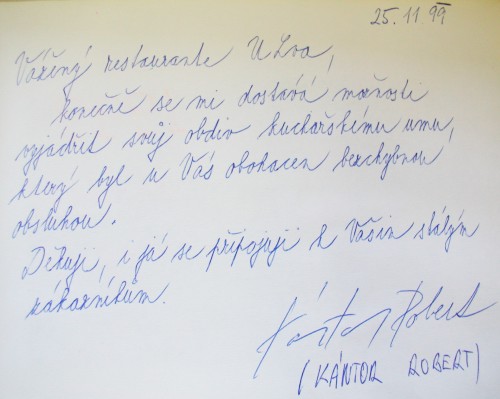 25.11.99
Vážený restaurante U Lva,
konečně se mi dostává možnosti
vyjádřit svůj obdiv kuchařskému umu,
který byl u Vás obohacen bezchybnou
obsluhou.
Děkuji, i já se připojuji k Vašim stálým
zákazníkům.
Kántor Robert
(KÁNTOR ROBERT)